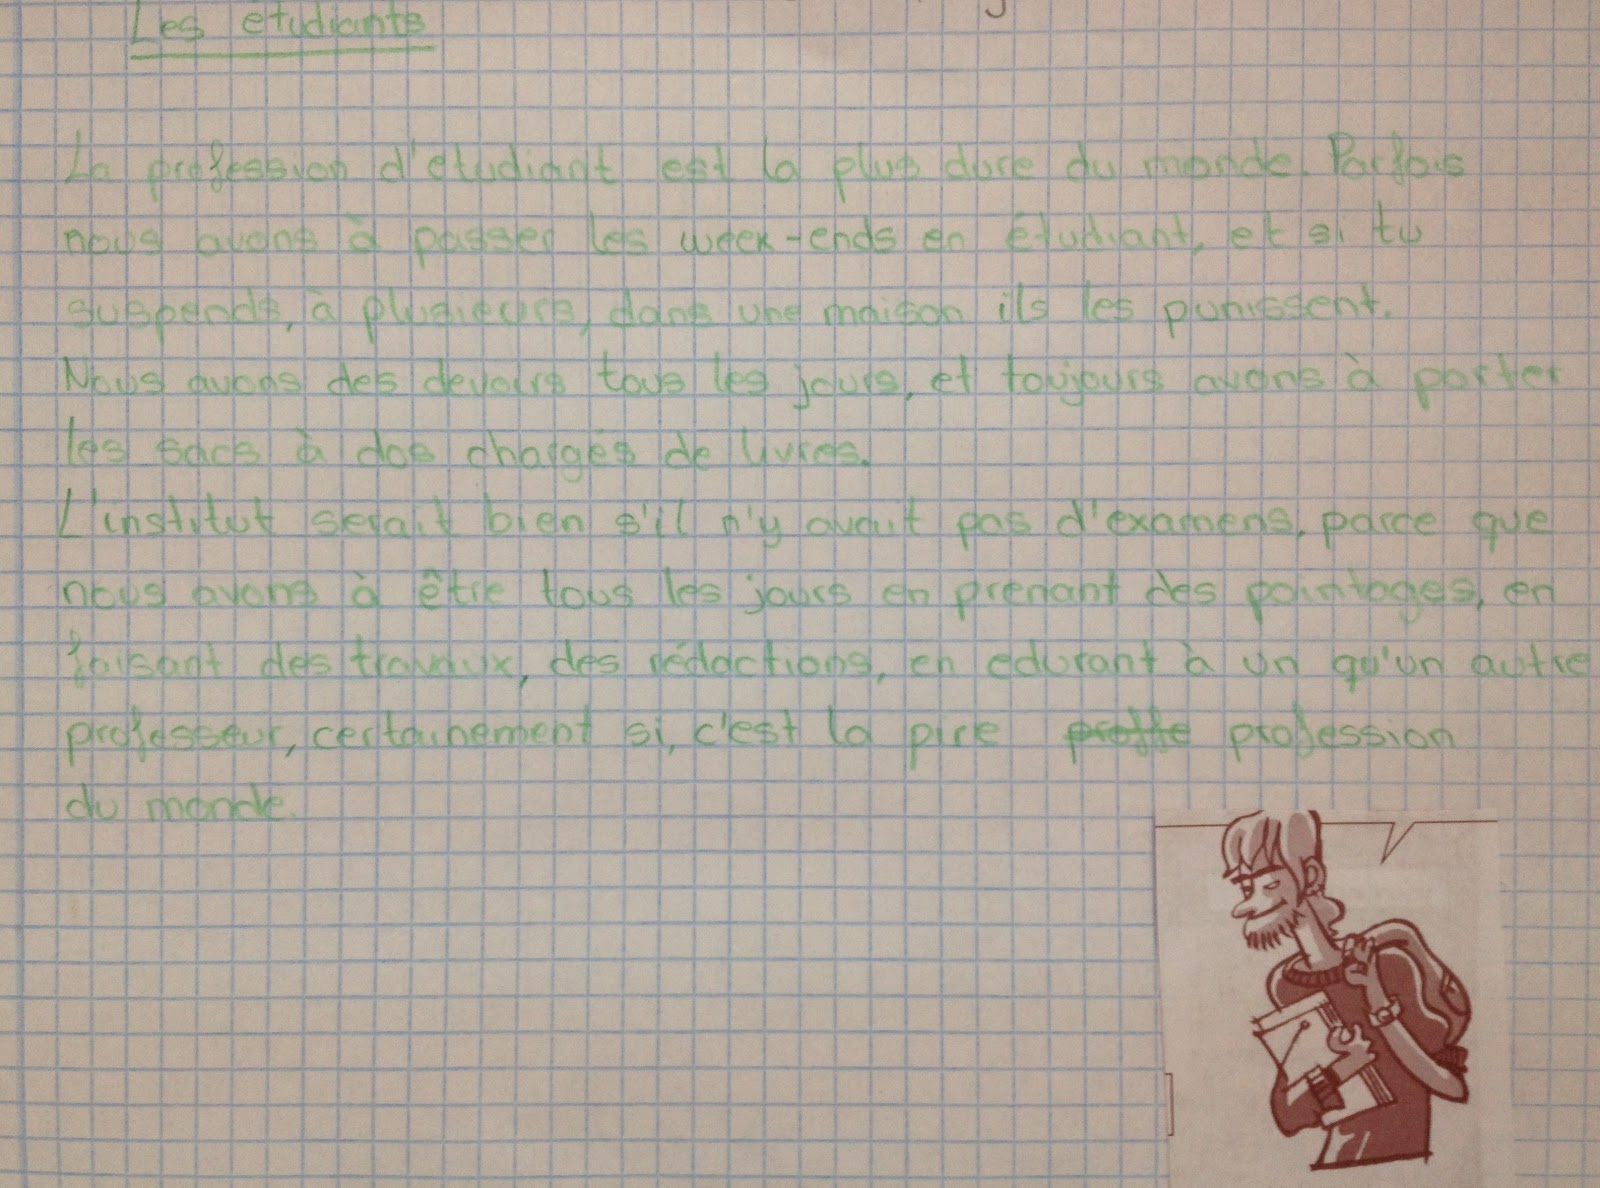 Les étudiants
La profession d'etudiant est la plus dure du monde. Parfois
nous avons à passer les week-ends en étudiant, et si tu
suspends, à plusieurs, dans une maison ils les punissent.
Nous avons des devoirs tous les jours, et toujours avons à porter
les sacs à dos chargés de livres.
L'institut serait bien s'il n'y avait pas d'examens, parce que
nous avons à être tous les jours en prenant des pointages, en
faisant des travaux, des rédactions, en edurant à un qu'un autre
professeur, certainement si, c'est la pire proffe profession
du monde.